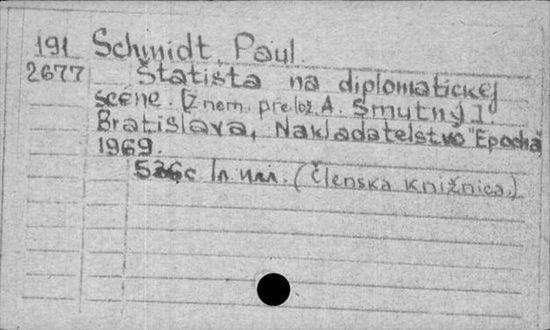 191 Schmidt, Paul
2677 Štatista na diplomatickej
scéne. [Z nem. prelož. A. Smutný].
Bratislava, Nakladatelstvo "Epocha"
1969.
(Členská knižnica.)